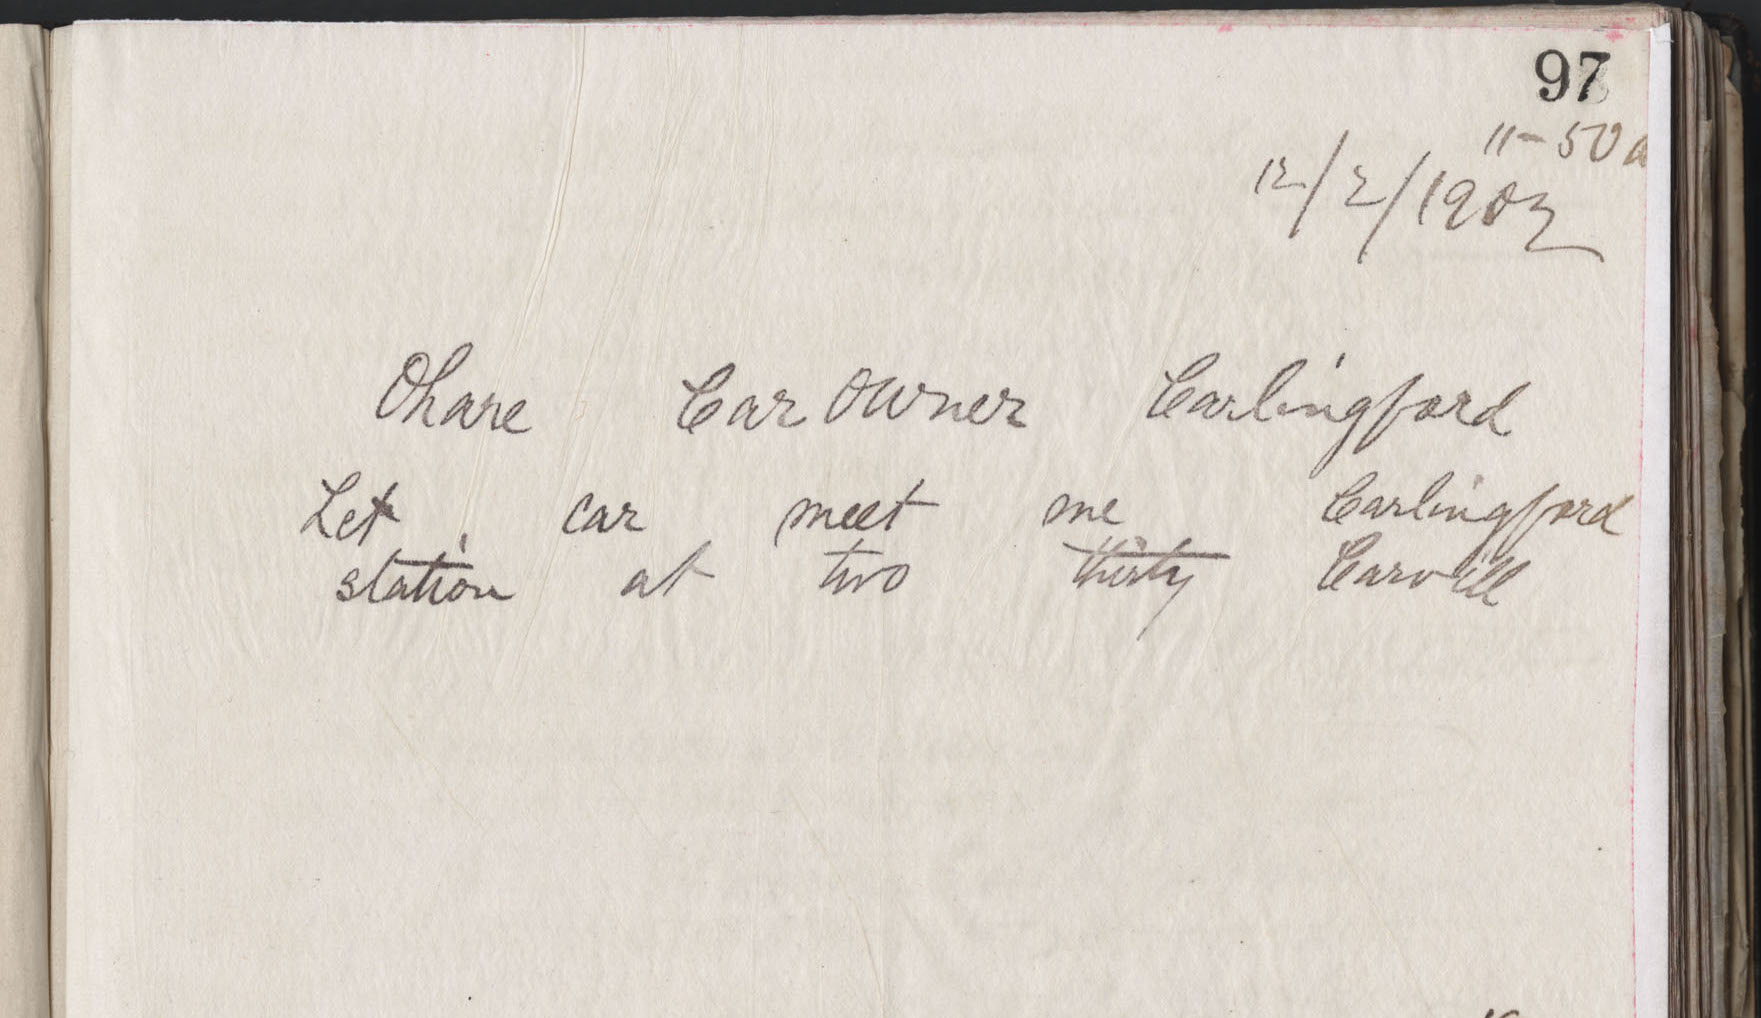 97
11-50 a
12/2/1903
Ohare Car Owner Carlingford
Let car meet me Carlingford
station at two thirty Carvill